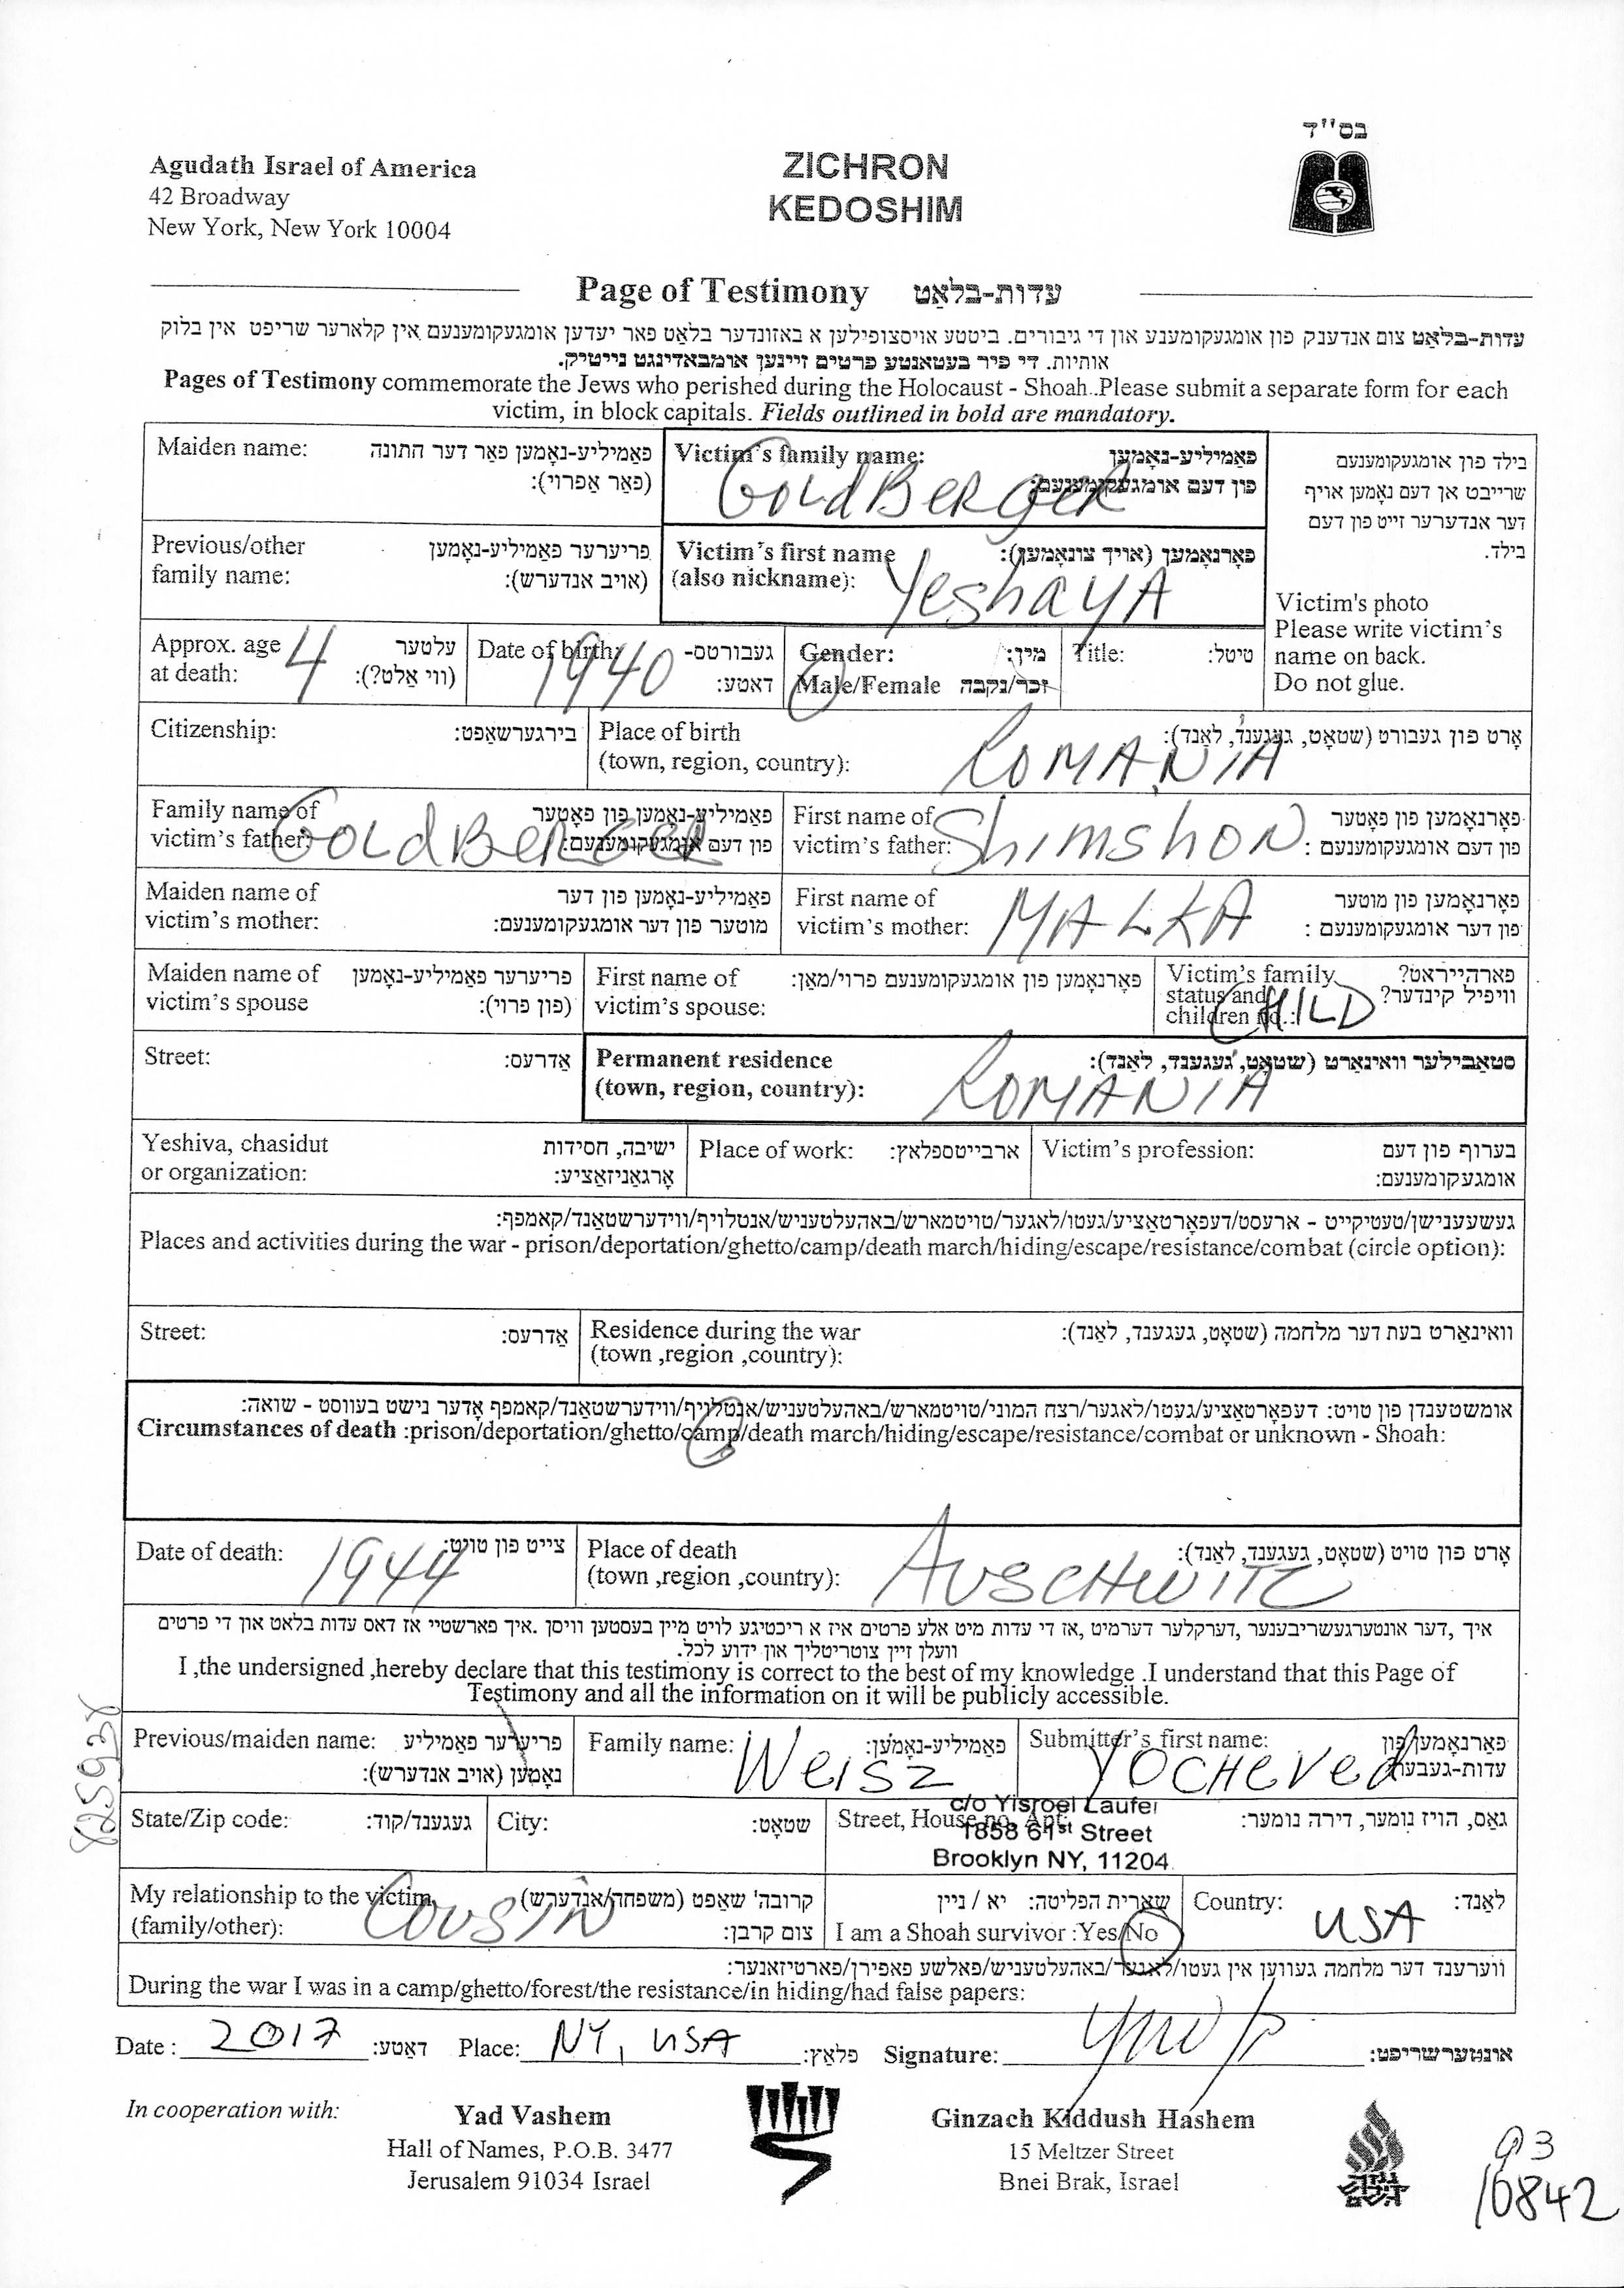 בס"ד
Agudath Israel of America
42 Broadway
New York, New York 10004
ZICHRON
KEDOSHIM
Page of Testimony עדות-בלאַט
עדות-בלאַט צום אנדענק פון אומגעקומענע און די גיבורים. ביטע אויסצופילען א באזונדער בלאט פאר יעדען אומגעקומענעם אין קלארער שריפט אין בלוק
אותיות. די פיר בעטאנטע פרטים זיינען אומבאדינגט נייטיק.
Pages of Testimony commemorate the Jews who perished during the Holocaust - Shoah..Please submit a separate form for each
victim, in block capitals. Fields outlined in bold are mandatory.
Maiden name: פאַמיליע-נאָמען פאר דער חתונה
(פאר אפרוי):
Victim's family name: פאַמיליע-נאָמען
פון דעם אומגעקומענעם:
GoldBERGER
בילד פון אומגעקומענעם
שרייבט אן דעם נאָמען אויף
דער אנדערער זייט פון דעם
בילד.
Victim's photo
Please write victim's
name on back.
Do not glue.
Previous/other פריערער פאַמיליע-נאָמען
family name: (אויב אנדערש):
Victim's first name פאָרנאָמען (אויך צונאָמען):
(also nickname): YeshayA
Approx. age עלטער
at death: 4 (ווי אלט?):
Date of birth: 1940 געבורטס-
דאטע:
Gender: מין:
Male/Female זכר/נקבה
Title: טיטל:
Citizenship: בירגערשאפט:
Place of birth אָרט פון געבורט (שטאָט, געגענד, לאַנד):
(town, region, country): ROMANIA
Family name of פאַמיליע-נאָמען פון פאָטער
victim's father: GoldBERGER פון דעם אומגעקומענעם:
First name of פאָרנאָמען פון פאָטער
victim's father: Shimshon פון דעם אומגעקומענעם :
Maiden name of פאַמיליע-נאָמען פון דער
victim's mother: מוטער פון דער אומגעקומענעם:
First name of פאָרנאָמען פון מוטער
victim's mother: MALKA פון דער אומגעקומענעם :
Maiden name of פריערער פאַמיליע-נאָמען
victim's spouse (פון פרוי):
First name of פאָרנאָמען פון אומגעקומענעם פרוי/מאַן:
victim's spouse:
Victim's family פארהייראט?
status and וויפיל קינדער?
children no.: CHILD
Street: אַדרעס:
Permanent residence סטאַבילער וואינאָרט (שטאָט, געגענד, לאַנד):
(town, region, country): ROMANIA
Yeshiva, chasidut ישיבה, חסידות
or organization: אָרגאַניזאַציע:
Place of work: ארבייטספלאץ:
Victim's profession: בערוף פון דעם
אומגעקומענעם:
געשעענישן/טעטיקייט - ארעסט/דעפּאָרטאַציע/געטו/לאגער/טויטמארש/באהעלטעניש/אנטלויף/ווידערשטאַנד/קאמפף:
Places and activities during the war - prison/deportation/ghetto/camp/death march/hiding/escape/resistance/combat (circle option):
Street: אַדרעס:
Residence during the war וואינאָרט בעת דער מלחמה (שטאָט, געגענד, לאַנד):
(town ,region ,country):
אומשטענדן פון טויט: דעפּאָרטאַציע/געטו/לאגער/רצח המוני/טויטמארש/באהעלטעניש/אנטלויף/ווידערשטאַנד/קאמפף אָדער נישט בעוווסט - שואה:
Circumstances of death :prison/deportation/ghetto/camp/death march/hiding/escape/resistance/combat or unknown - Shoah:
Date of death: 1944 צייט פון טויט:
Place of death אָרט פון טויט (שטאָט, געגענד, לאַנד):
(town ,region ,country): AUSCHWITZ
איך ,דער אונטערגעשריבענער ,דערקלער דערמיט ,אז די עדות מיט אלע פרטים איז א ריכטיגע לויט מיין בעסטען וויסן .איך פארשטיי אז דאס עדות בלאט און די פרטים
וועלן זיין צוטריטליך און ידוע לכל.
I ,the undersigned ,hereby declare that this testimony is correct to the best of my knowledge .I understand that this Page of
Testimony and all the information on it will be publicly accessible.
Previous/maiden name: פריערער פאַמיליע
נאָמען (אויב אנדערש):
Family name: Weisz פאַמיליע-נאָמען:
Submitter's first name: פאָרנאָמען פון
YOCHEVED עדות-געבער:
State/Zip code: געגענד/קוד:
City: שטאָט:
Street, House no, Apt: גאס, הויז נומער, דירה נומער:
c/o Yisroel Laufer
1858 61st Street
Brooklyn NY, 11204
My relationship to the victim קרובה'שאפט (משפחה/אנדערש)
(family/other): COUSIN צום קרבן:
שארית הפליטה: יא / ניין
I am a Shoah survivor :Yes/No
Country: לאַנד:
USA
ווערענד דער מלחמה געווען אין געטו/לאגער/באהעלטעניש/פאלשע פאפירן/פארטיזאנער:
During the war I was in a camp/ghetto/forest/the resistance/in hiding/had false papers:
Date : 2017 דאַטע: Place: NY, USA פלאַץ: Signature: אונטערשריפט:
In cooperation with:
Yad Vashem
Hall of Names, P.O.B. 3477
Jerusalem 91034 Israel
Ginzach Kiddush Hashem
15 Meltzer Street
Bnei Brak, Israel
93
16842